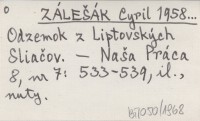 ZÁLEŠÁK Cyril 1958...
Odzemok z Liptovských
Sliačov. — Naša Práca
8, nr 7: 533-539, il.,
nuty.
1050/1968